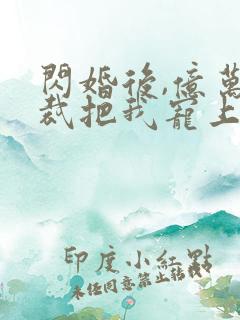 閃婚後,億萬
裁把我寵上
印度小紅點
未經同意禁止轉載